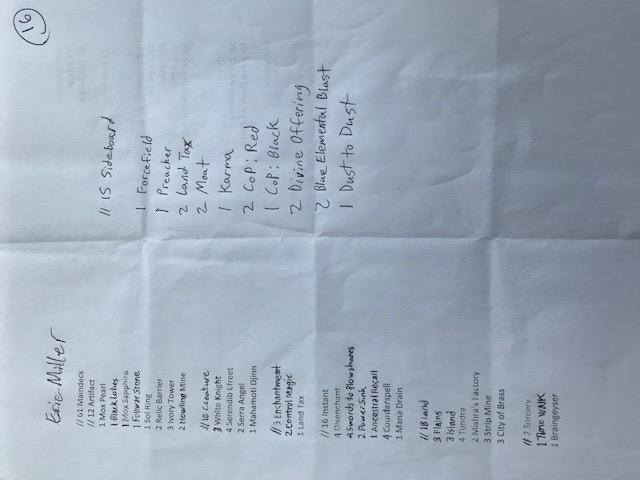 16
Eric Miller
// 61 Maindeck
// 12 Artifact
1 Mox Pearl
1 Black Lotus
1 Mox Sapphire
1 Fellwar Stone
1 Sol Ring
2 Relic Barrier
3 Ivory Tower
2 Howling Mine
// 10 Creature
3 White Knight
4 Serendib Efreet
2 Serra Angel
1 Mahamoti Djinn
// 3 Enchantment
2 Control Magic
1 Land Tax
// 16 Instant
4 Disenchant
4 Swords to Plowshares
2 Power Sink
1 Ancestral Recall
4 Counterspell
1 Mana Drain
// 18 Land
3 Plains
3 Island
4 Tundra
2 Mishra's Factory
3 Strip Mine
3 City of Brass
// 2 Sorcery
1 Time Walk
1 Braingeyser
// 15 Sideboard
1 Forcefield
1 Preacher
2 Land Tax
2 Moat
1 Karma
2 CoP: Red
1 CoP: Black
2 Divine Offering
2 Blue Elemental Blast
1 Dust to Dust